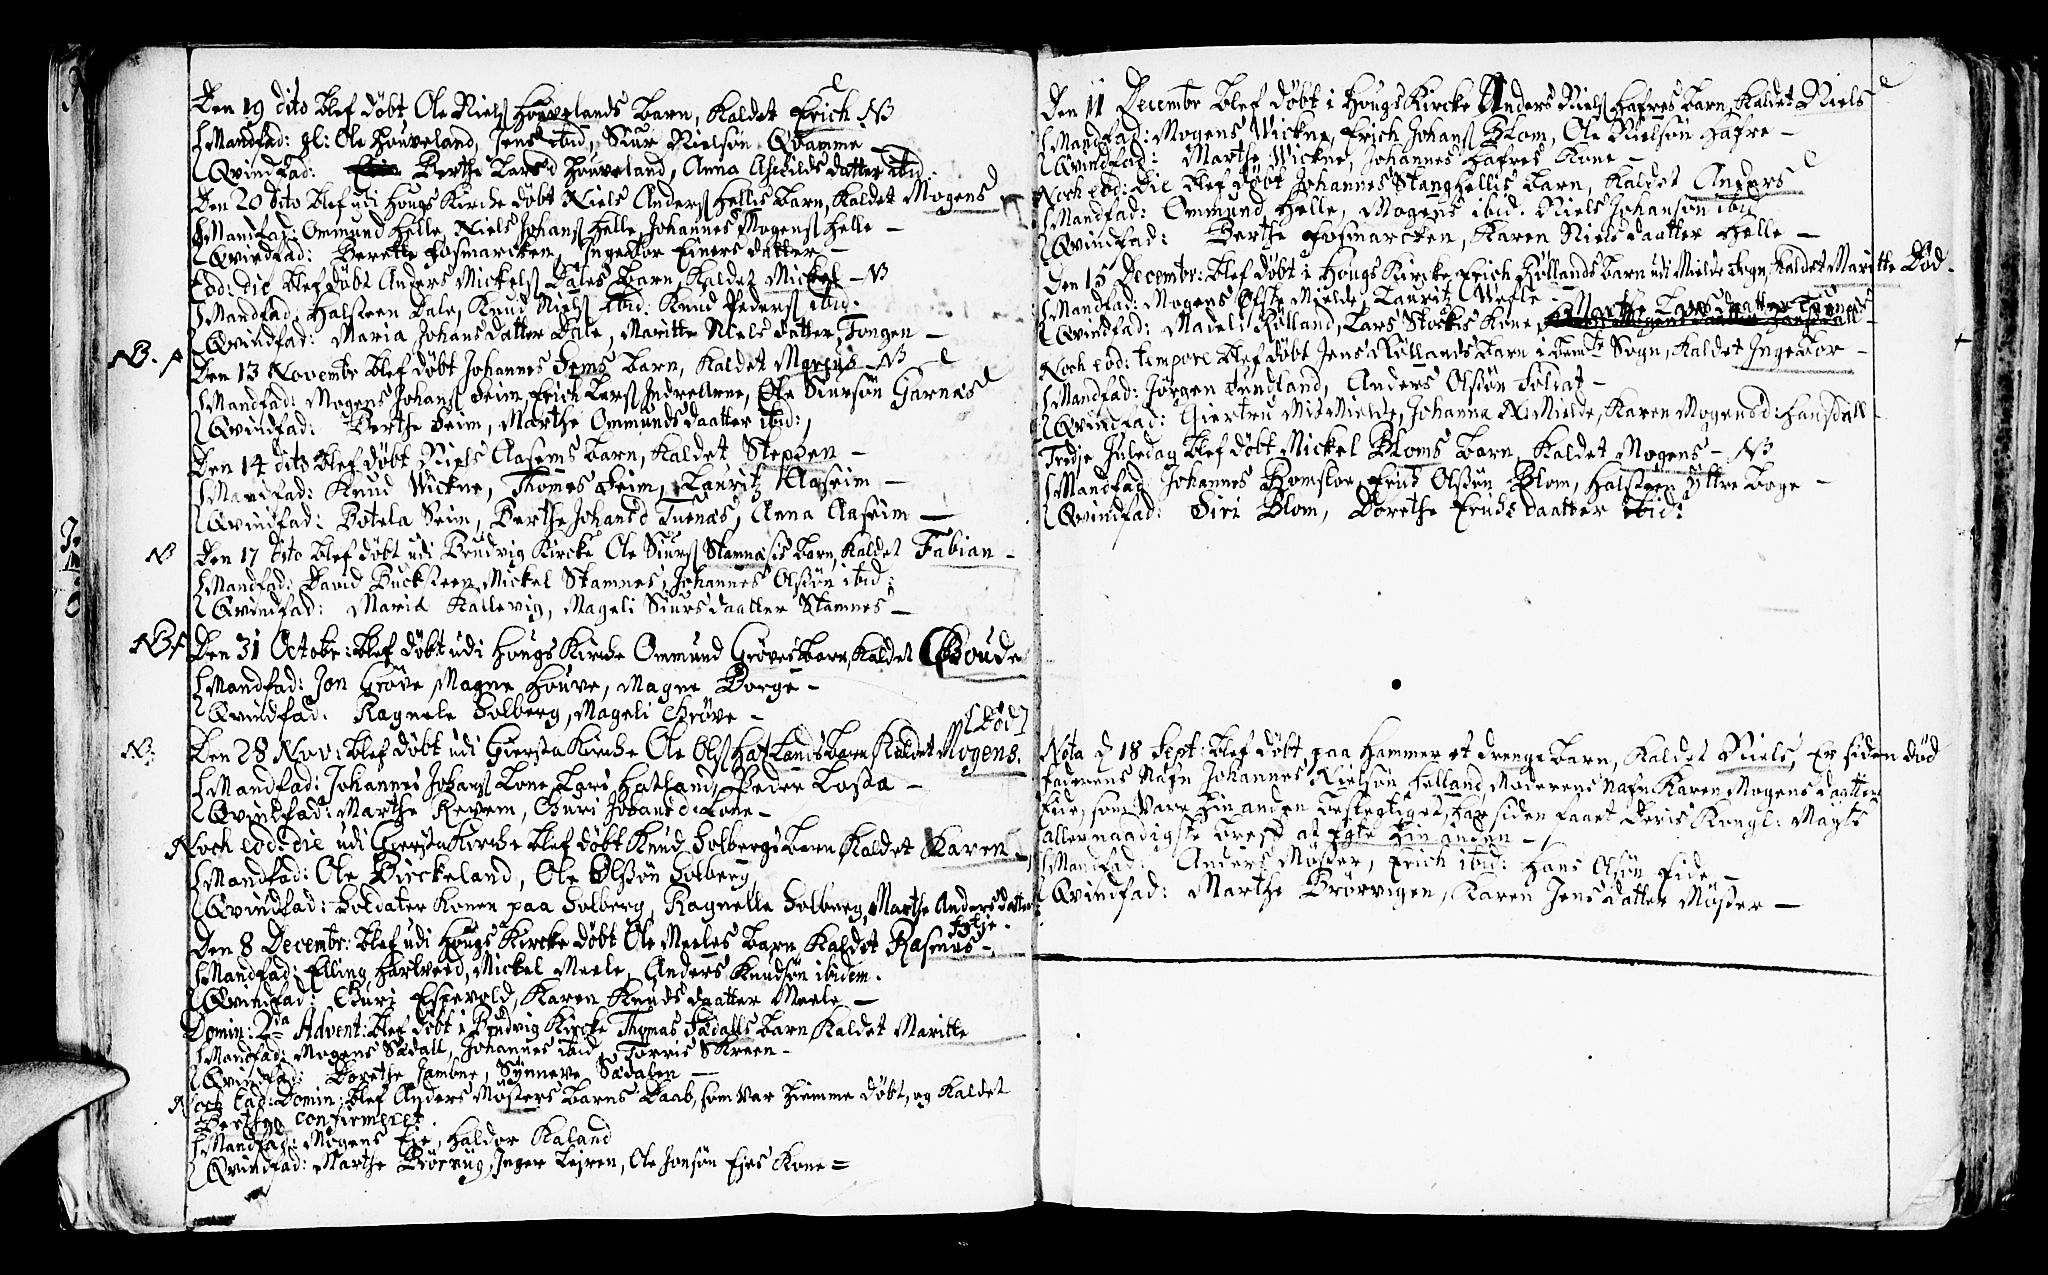 Den 19 dito blef döbt Ole Niels Houvelands Barn, Kaldet Erich NB
Mandfad: gl: Ole Houveland, Jens ibid, Siur Nielsön Qvamme
Qvindfad: Berthe Lars d Houveland, Anna Aschilds datter ibid:
Den 20 dito blef udi Hougs Kirche döbt Niels Anders Hellis Barn, Kaldet Mogens
Mandfad: Ommund Helle, Niels Johans Helle, Johannes Mogens Helle –
Qvindfad: Berette Fosmarcken, Ingebor Einers datter –
Eod: die blef döbt Anders Mickels Dales Barn, Kaldet Mickel – NB
Mandfad: Halsteen Dale, Knud Niels ibid: Knud Peders ibid:
Qvindfad: Maria Johans datter Dale, Maritte Niels datter Fongen –
NB. Den 13 Novembr blef döbt Johannes Sems Barn, Kaldet Marcus – NB
Mandfad: Mogens Johans Seim, Erich Lars Indre Arne, Ole Siursön Garnæs
Qvindfad: Berthe Seim, Marthe Ommunds daatter ibid:
Den 14 dito blef döbt Niels Aasems Barn, Kaldet Stephen –
Mandfad: Knud Wickne, Thomes Seim, Lauritz Aaseim –
Qvindfad: Botela Seim, Berthe Johans d Tuenæs, Anna Aaseim –
NB Den 17 dito blef döbt udi Brudvig Kircke Ole Siurs Stamnæsis Barn, Kaldet Fabian –
Mandfad: David Bucksteen, Mickel Stamnes, Johannes Olsön ibid:
Qvindfad: Maria Kallevig, Mageli Siurs daatter Stamnes –
NB Den 31 Octobr: blef döbt udi Hougs Kirche Ommund Gröves Barn, Kaldet Boude
Mandfad: Jon Gröve, Magne Houve, Magne Borge –
Qvindfad: Ragnele Solberg, Mageli Gröve –
[död]
NB: Den 28 Nov: blef döbt udi Giersta Kirche Ole Ols Hatlands Barn Kaldet Mogens.
Mandfad: Johannes Johans Lone, Lars Hatland, Peder Losta –
Qvindfad: Marthe Revem, Guri Johans d: Lone –
Noch eod: die udi Giersta Kirche blef döbt Knud Solbergs Barn Kaldet Karen –
Mandfad: Ole Birckeland, Ole Olsön Solberg
Qvindfad: Soldater Konen paa Solberg, Ragnelle Solberg, Marthe Anders datter
Den 8 Decembr: blef udi Hougs Kircke döbt Ole Meeles Barn Kaldet Rasmus –
Mandfad: Elling Hartveed, Mickel Meele, Anders Knudsön ibidem.
Qvindfad: Guri Espevold, Karen Knuds daatter Meele –
Domin: 2da Advent: blef döbt i Brudvig Kircke Thomas Sædalls Barn Kaldet Maritte
Mandfad: Mogens Sædall, Johannes ibid, Torris Skreen –
Qvindfad: Dorethe Jambne, Synneve Sædalen –
Noch Ead: Domin: blef Anders Mösters Barns Daab, som var hiemme döbt, og Kaldet
Berthe confirmeret.
Mandfad: Mogens Eje, Haldor Kaland
Qvindfad: Marthe Brörvig, Inger Lejren, Ole Jonsön Ejes Kone =
Den 11 Decembr blef döbt i Hougs Kircke Anders Niels Hafres Barn, Kaldet Niels
Mandfad: Mogens Wickne, Erich Johans Blom, Ole Nielsön Hafre –
Qvindfad: Marthe Wickne, Johannes Hafres Kone –
Noch eod: die blef döbt Johannes Stanghellis Barn, Kaldet Anders
Mandfad: Ommund Helle, Mogens ibid. Niels Johansön ibid
Qvindfad: Berthe Fosmarcken, Karen Niels daatter Helle –
Den 15 Decembr: blef döbt i Hougs Kircke Erich Hollands Barn udi Mielde Sogn, Kaldet Maritte Död.
Mandfad: Mogens Öfste Mielde, Lauritz Wefle –
Qvindfad: Madeli Rolland, Lars Stockis Kone, Marthe Lars daatter Tuenæs
Noch eod: tempore blef döbt Jens Rollands Barn i bemte Sogn, Kaldet Ingebor –
Mandfad: Jörgen Sundland, Anders Olsön Soldat –
Qvindfad: Giertru Mit Mielde, Johanna N: Mielde, Karen Mogens d: Hansdall
Tredje Juledag blef döbt Mickel Bloms Barn, Kaldet Mogens – NB
Mandfad: Johannes Romsloe, Erich Olsön Blom, Halsteen Yttre Boge –
Qvindfad: Siri Blom, Dorethe Erichs daatter ibid:
Nota d 18 Sept: blef döbt, paa Hammer et drenge Barn, Kaldet Niels, Er siden död
Faderens Nafn Johannes Nielsön Falland, Moderens Nafn Karen Mogens daatter
Eide, som vare hinanden beslegtiget, har siden faaet Deris Kongl: Mayts
allernaadigste breff at Egte hinanden –
Mandfad: Anders Möster, Erich ibid: Hans Olsön Eide –
Qvindfad: Marthe Brörvigen, Karen Jens datter Möster –